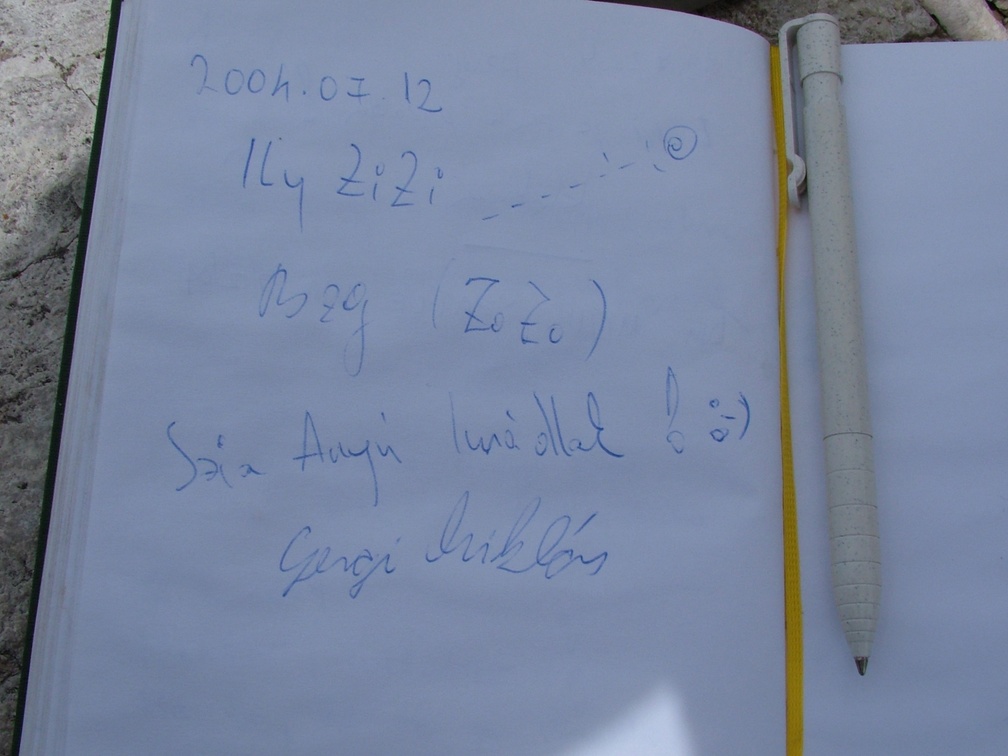 2004.07.12
Ily ZiZi
Bzg (ZoZo)
Szia Anyu Imádlak! :)
Gergi Miklós